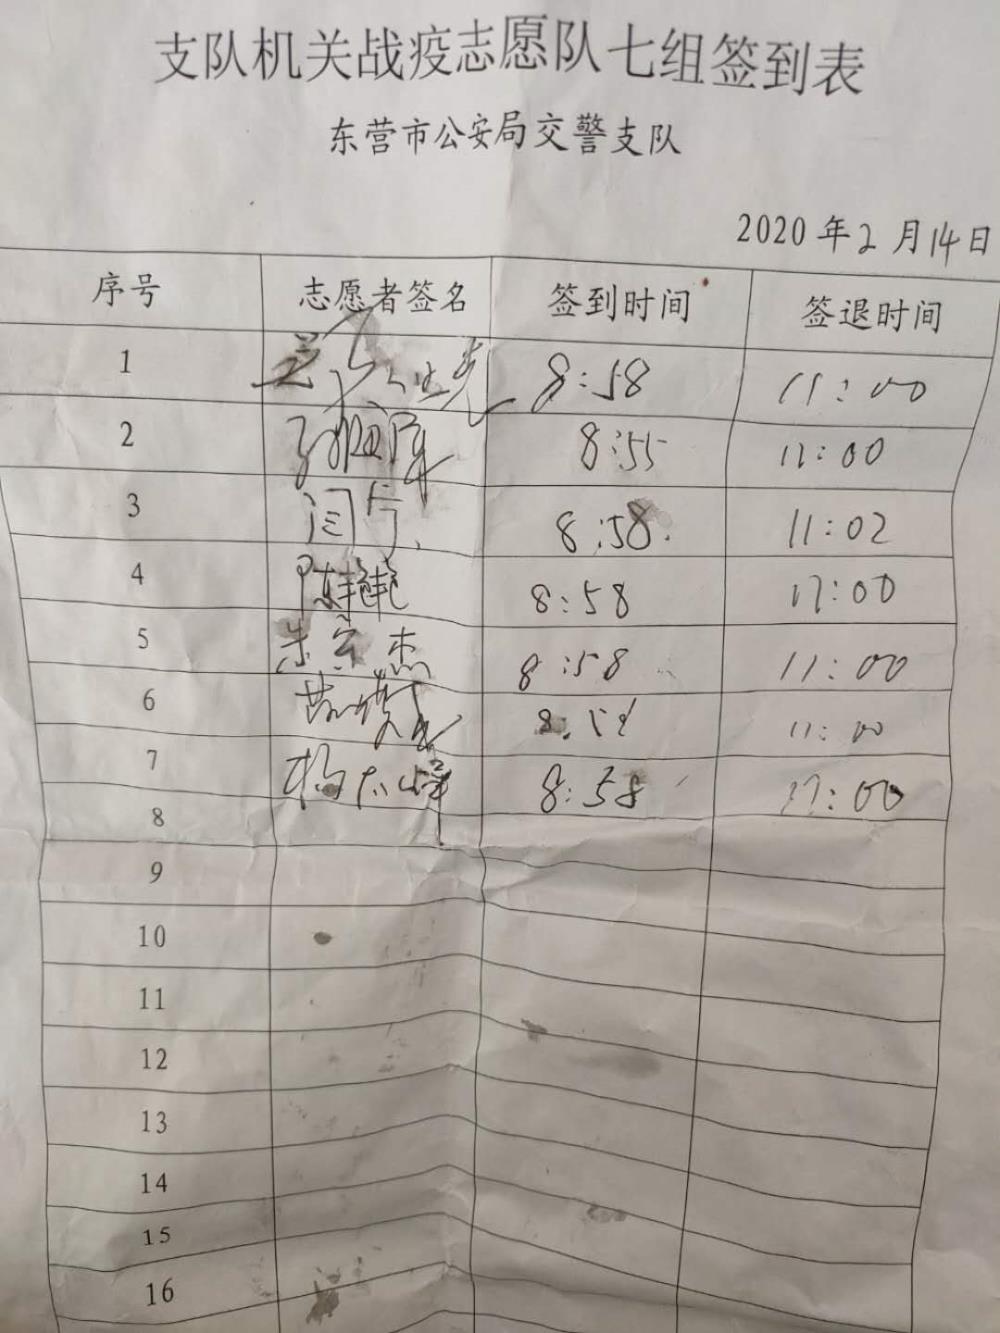 支队机关战疫志愿队七组签到表
东营市公安局交警支队
2020年2月14日
序号 志愿者签名 签到时间 签退时间
1 8:58 11:00
2 8:55 11:00
3 闫 8:58 11:02
4 陈艳艳 8:58 11:00
5 朱 杰 8:58 11:00
6 8: 11:00
7 杨 峰 8:58 11:00
8
9
10
11
12
13
14
15
16